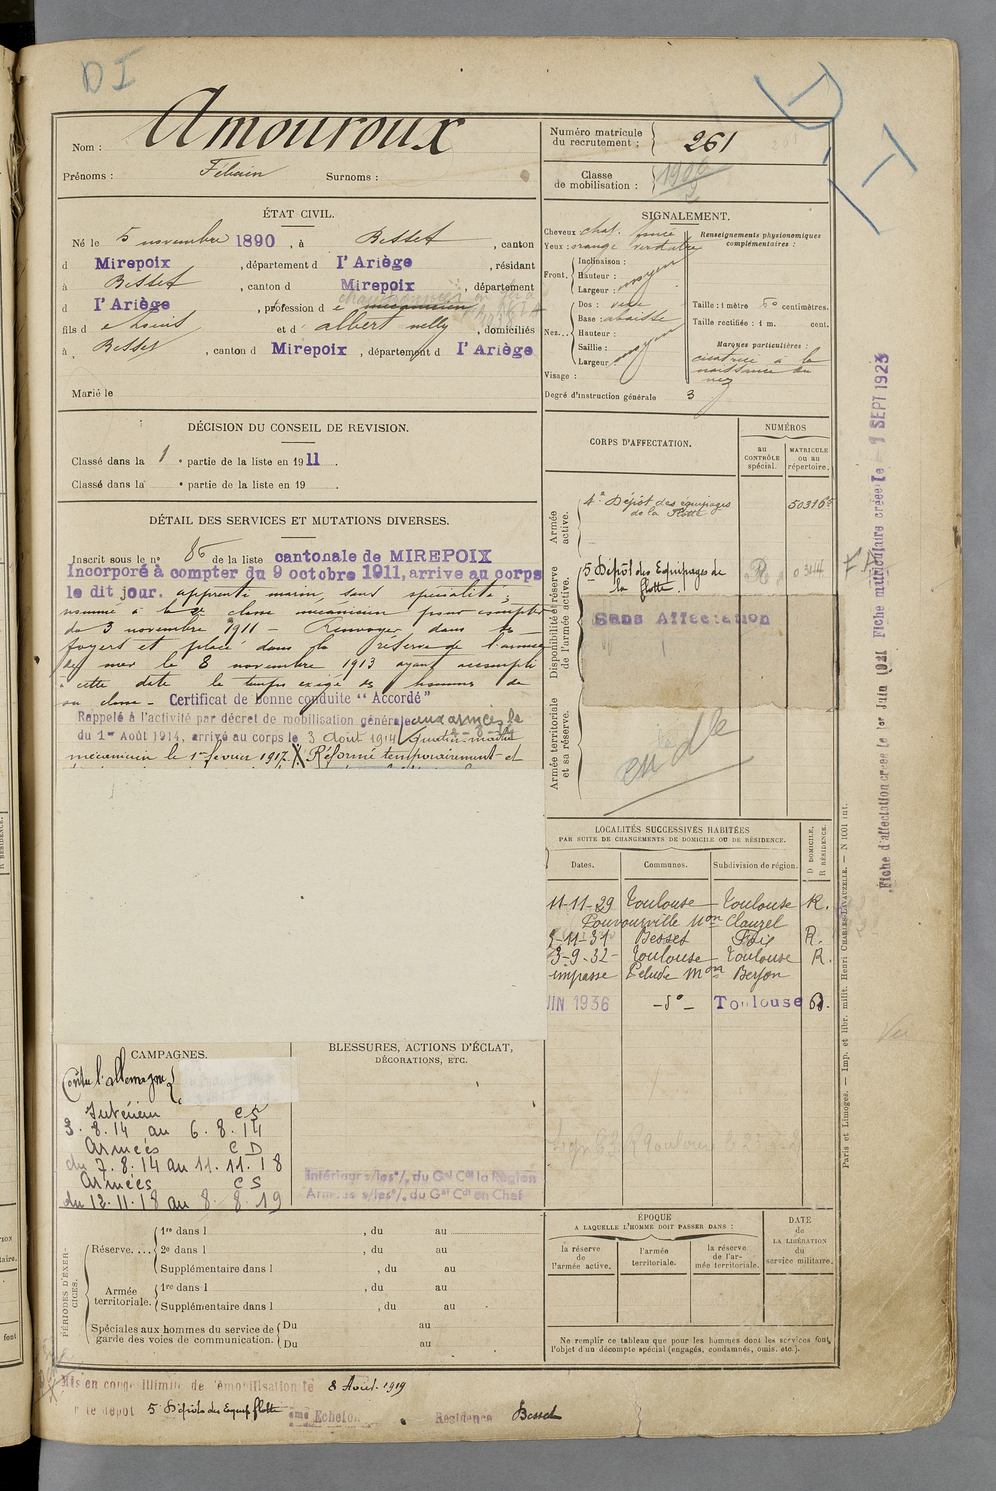 D I
Nom : Amouroux
Prénoms : Félicien Surnoms :
Numéro matricule du recrutement : 261
Classe de mobilisation : 1906
ÉTAT CIVIL.
Né le 5 novembre 1890, à Besset, canton
d Mirepoix, département d l'Ariège, résidant
à Besset, canton d Mirepoix, département
d l'Ariège, profession d e mécanicien
fils d e Louis et d albert nelly, domiciliés
à Besset, canton d Mirepoix, département d l'Ariège
Marié le
SIGNALEMENT.
Cheveux chat. foncé
Yeux : orange verdatre
Front. Inclinaison :
Hauteur : moyen
Largeur :
Nez... Dos : vexe
Base : abaissé
Hauteur :
Saillie : moyen
Largeur
Visage :
Renseignements physionomiques complémentaires :
Taille : 1 mètre 60 centimètres.
Taille rectifiée : 1 m. cent.
Marques particulières :
cicatrice à la
naissance du
nez
Degré d'instruction générale 3
DÉCISION DU CONSEIL DE REVISION.
Classé dans la 1 e partie de la liste en 1911.
Classé dans la e partie de la liste en 19 .
DÉTAIL DES SERVICES ET MUTATIONS DIVERSES.
Inscrit sous le n° 86 de la liste cantonale de MIREPOIX
Incorporé à compter du 9 octobre 1911, arrive au corps
le dit jour. apprenti marin, sans spécialité ;
nommé à la 2e classe mécanicien pour compter
du 3 novembre 1911 – Renvoyé dans ses
foyers et placé dans la réserve de l'armée
de mer le 8 novembre 1913 ayant accompli
à cette date le temps exigé des hommes de
sa classe – Certificat de bonne conduite "Accordé"
Rappelé à l'activité par décret de mobilisation générale aux armées le
du 1er Août 1914, arrivé au corps le 3 Aout 1914 Quartier-maître
mécanicien le 1er février 1917. Réformé temporairement et
CORPS D'AFFECTATION.
NUMÉROS
au CONTRÔLE spécial.
MATRICULE ou au répertoire.
Armée active.
4e Dépôt des équipages
de la Flotte
Disponibilité et réserve de l'armée active.
5 Dépôt des Equipages de
la flotte.
Sans Affectation
Armée territoriale et sa réserve.
LOCALITÉS SUCCESSIVES HABITÉES
PAR SUITE DE CHANGEMENTS DE DOMICILE OU DE RÉSIDENCE.
Dates. Communes. Subdivision de région. D DOMICILE, R RÉSIDENCE.
11-11-29 Toulouse Toulouse R.
Pouvourville Mon Clauzel
Besset Foix R.
3-9-32 Toulouse Toulouse R.
impasse Mon
UIN 1936 –do– Toulouse D.
CAMPAGNES.
Contre l'allemagne
Intérieur CS
3.8.14 au 6.8.14
Armées CD
du 7.8.14 au 11.11.18
Armées CS
du 12.11.18 au 8-8-19
BLESSURES, ACTIONS D'ÉCLAT, DÉCORATIONS, ETC.
Intérieur s/les o/, du Gal Cdt la Région
Armées s/les o/, du Gal Cdt en Chef
PÉRIODES D'EXERCICES.
Réserve.... 1re dans l , du au
2e dans l , du au
Supplémentaire dans l , du au
Armée territoriale. 1re dans l , du au
Supplémentaire dans l , du au
Spéciales aux hommes du service de garde des voies de communication. Du au
Du au
ÉPOQUE
A LAQUELLE L'HOMME DOIT PASSER DANS :
la réserve de l'armée active.
l'armée territoriale.
la réserve de l'armée territoriale.
DATE de LA LIBÉRATION du service militaire.
Ne remplir ce tableau que pour les hommes dont les services font
l'objet d'un décompte spécial (engagés, condamnés, omis, etc.).
Mis en congé illimité de démobilisation le 8 Aout 1919
dépôt 5 Dépôts des Equip flotte ème Echelon Résidence Besset
Fiche d'affectation créée le 1er Juin 1921 Fiche matriculaire créée le 1 SEPT 1923
Paris et Limoges. — Imp. et libr. milit. Henri CHARLES-LAVAUZELLE. — N 1001 int.